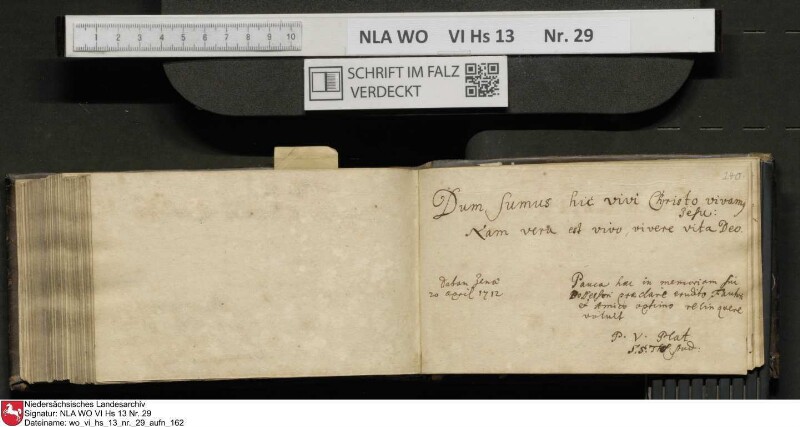 1 2 3 4 5 6 7 8 9 10
NLA WO VI Hs 13 Nr. 29
SCHRIFT IM FALZ
VERDECKT
240.
Dum sumus hic vivi Christo vivamq
Jesu:
Nam vera est vivo, vivere vita Deo.
Datam Jenae
20 april 1712
Pauca hac in memoriam sui
praeclare erudito
et Amico optimo relinquere
voluit
P. V. Plat
Niedersächsisches Landesarchiv
Signatur: NLA WO VI Hs 13 Nr. 29
Dateiname: wo_vi_hs_13_nr._29_aufn_162